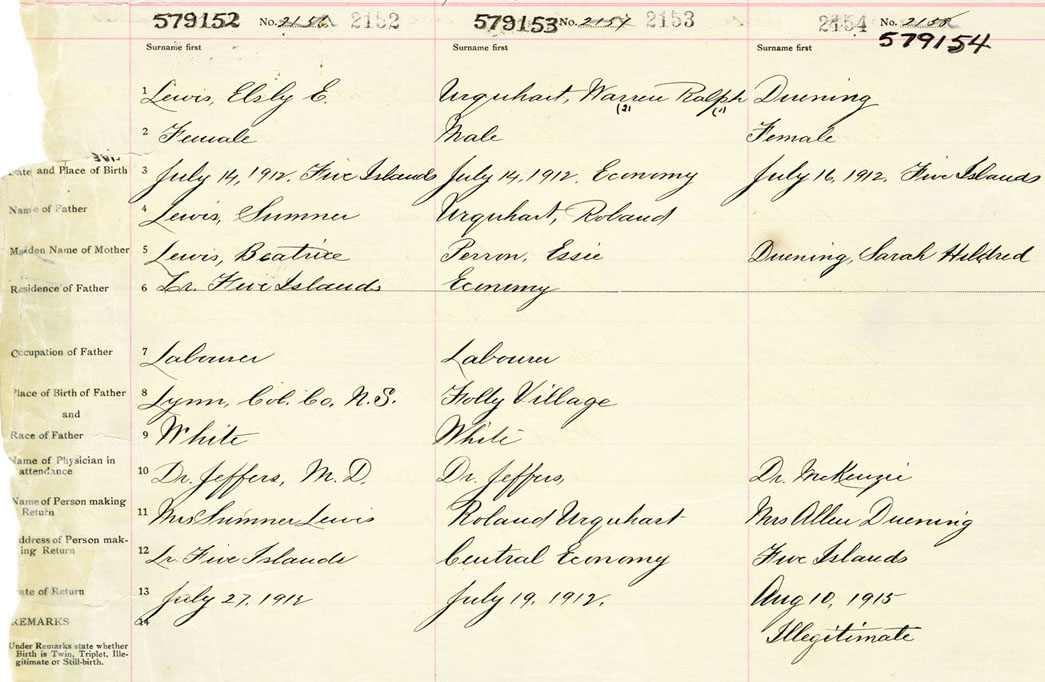 579152 No. 2156 2152 579153 No. 2157 2153 2154 No. 2158
579154
Surname first Surname first Surname first
1 Lewis, Elsly E. Urquhart, Warren Ralph Duening
(2) (1)
2 Female Male Female
LIVE
Date and Place of Birth 3 July 14, 1912. Five Islands July 14, 1912. Economy July 16, 1912. Five Islands
Name of Father 4 Lewis, Sumner Urquhart, Roland
Maiden Name of Mother 5 Lewis, Beatrice Perron, Essie Duening, Sarah Hildred
Residence of Father 6 Lr. Five Islands Economy
Occupation of Father 7 Labourer Labourer
Place of Birth of Father 8 Lynn, Col. Co, N.S. Folly Village
and
Race of Father 9 White White
Name of Physician in
attendance 10 Dr. Jeffers, M.D. Dr. Jeffers, Dr. McKenzie
Name of Person making
Return 11 Mrs Sumner Lewis Roland Urquhart Mrs Allen Duening
Address of Person mak-
ing Return 12 Lr. Five Islands Central Economy Five Islands
Date of Return 13 July 27, 1912 July 19, 1912. Aug 10, 1915
REMARKS 14 Illegitimate
Under Remarks state whether
Birth is Twin, Triplet, Ille-
gitimate or Still-birth.